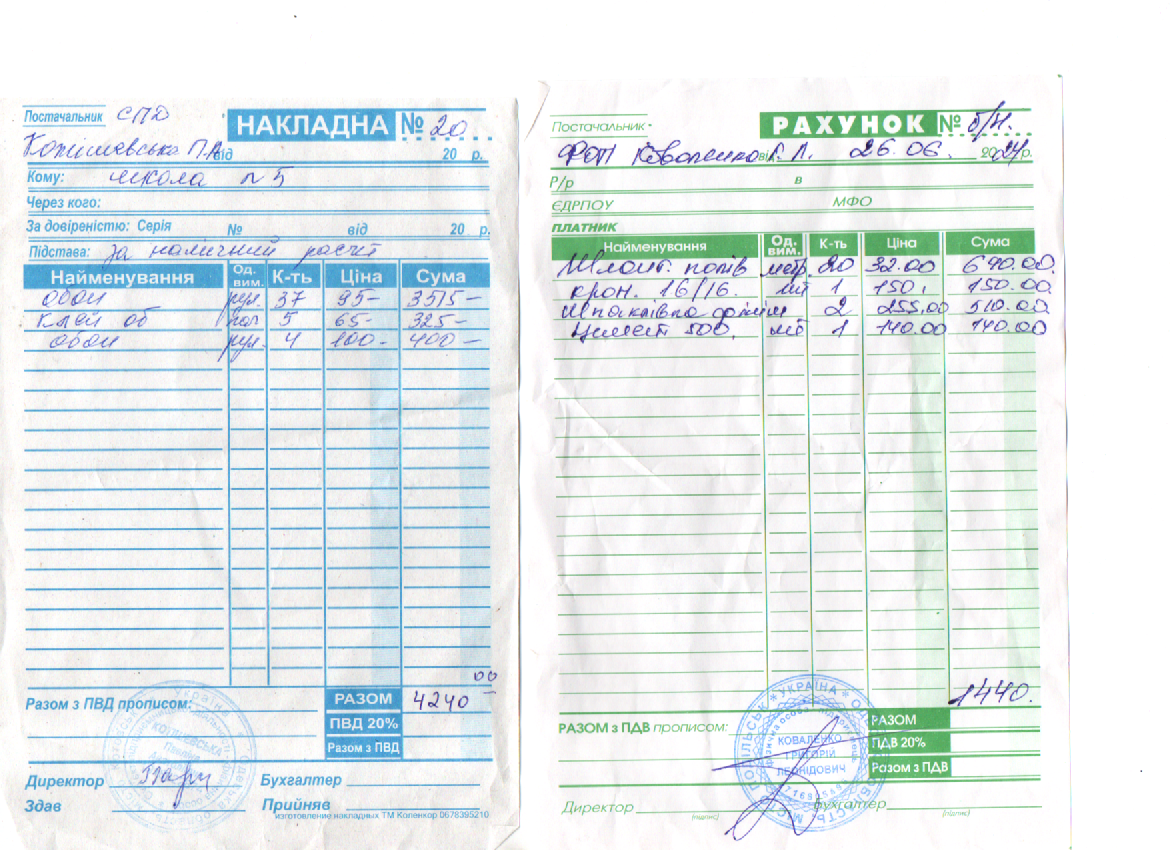 Постачальник СПД
НАКЛАДНА № 20
Кожишевська П.А. від 20 р.
Кому: школа № 5
Через кого:
За довіреністю: Серія № від 20 р.
Підстава: за наличний расчёт
Найменування Од. вим. К-ть Ціна Сума
обои рул. 37 95- 3515-
Клей об пач 5 65- 325-
обои рул. 4 100- 400-
Разом з ПВД прописом: РАЗОМ 4240 00
ПВД 20%
Разом з ПВД
Директор Бухгалтер
Здав Прийняв
изготовление накладных ТМ Коленкор 0678395210
Постачальник -
РАХУНОК № б/н.
ФОП Коваленко Г.Л. від 26.06. 2024р.
Р/р в
ЄДРПОУ МФО
ПЛАТНИК
Найменування Од. вим. К-ть Ціна Сума
Шланг. полів метр. 20 32.00 640.00.
крон. 16/16. шт 1 150, 150.00
Шпаклівка фініш 2 255,00 510.00
Цемент 500, шт 1 140.00 140.00
1440.
РАЗОМ з ПДВ прописом: РАЗОМ
ПДВ 20%
Разом з ПДВ
УКРАЇНА
КОВАЛЕНКО
ГРИГОРІЙ
ЛЕОНІДОВИЧ
Директор Бухгалтер
(підпис) (підпис)